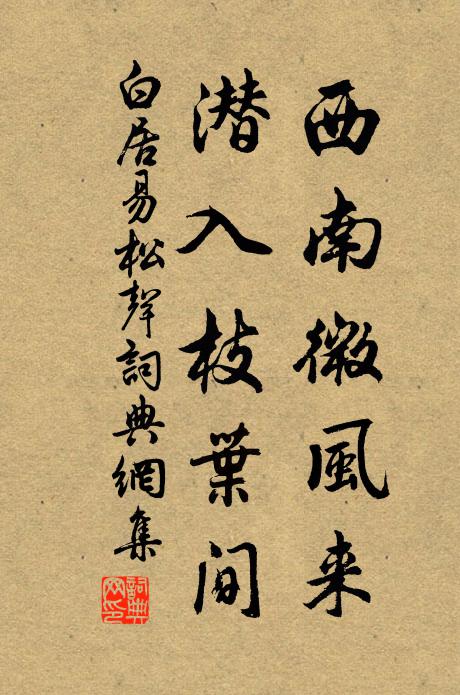 西南微風来
潜入枝葉间
白居易松聲詞典網集
詞典网印